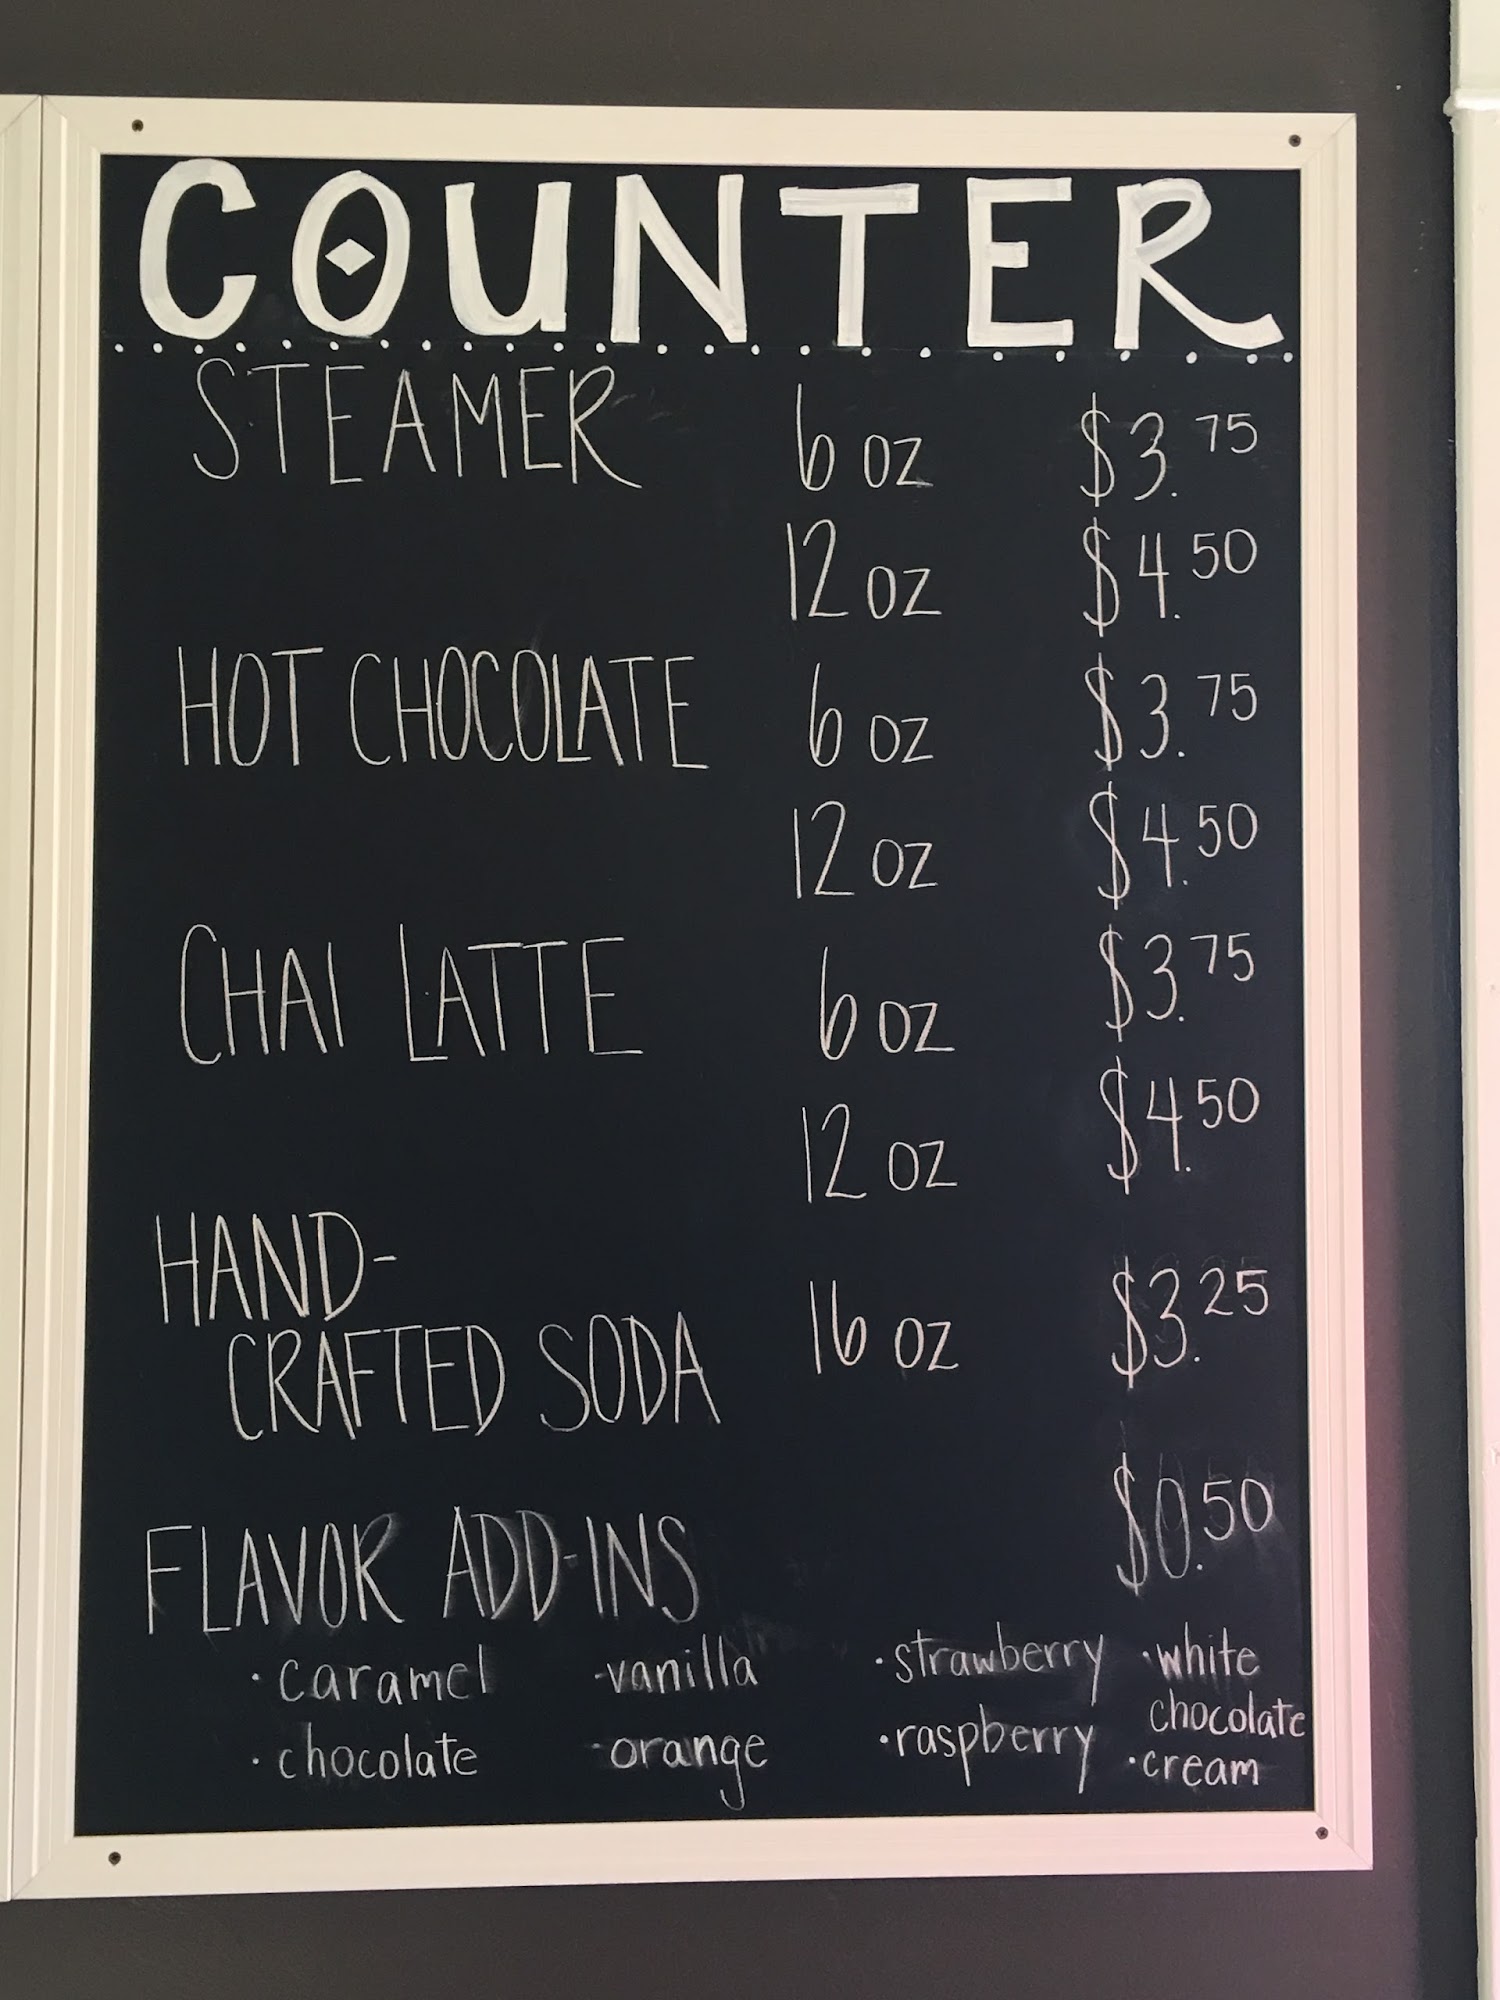 COUNTER
STEAMER 6 oz $3.75
12 oz $4.50
HOT CHOCOLATE 6 oz $3.75
12 oz $4.50
CHAI LATTE 6 oz $3.75
12 oz $4.50
HAND-
CRAFTED SODA 16 oz $3.25
FLAVOR ADD-INS $0.50
· caramel - vanilla · strawberry · white
chocolate
· chocolate - orange · raspberry · cream